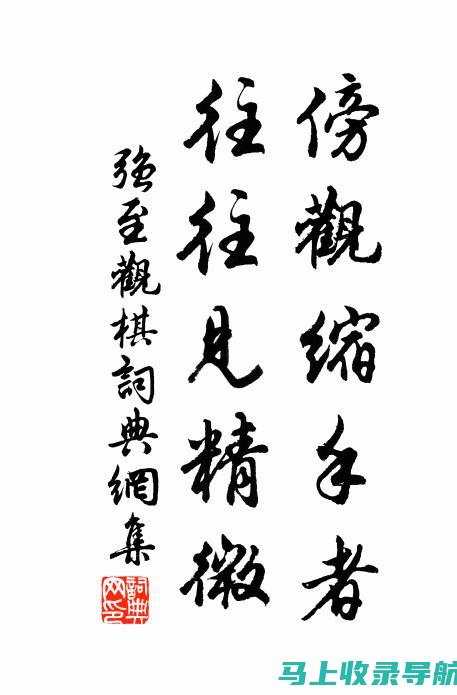 傍觀縮手者
往往見精微
强至觀棋詞典網集
詞典
网印
马上收录导航